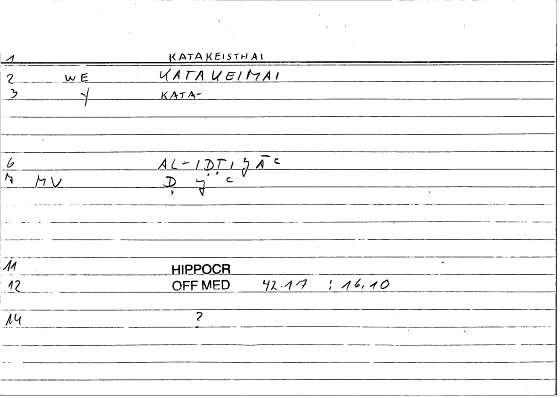 1 KATAKEISTHAI
2 WE KATAKEIMAI
3 Y KATA-
6 AL-IḌṬIǧĀC
7 MV Ḍ ǧ C
11 HIPPOCR
12 OFF MED 42.17 : 16.10
14 ?